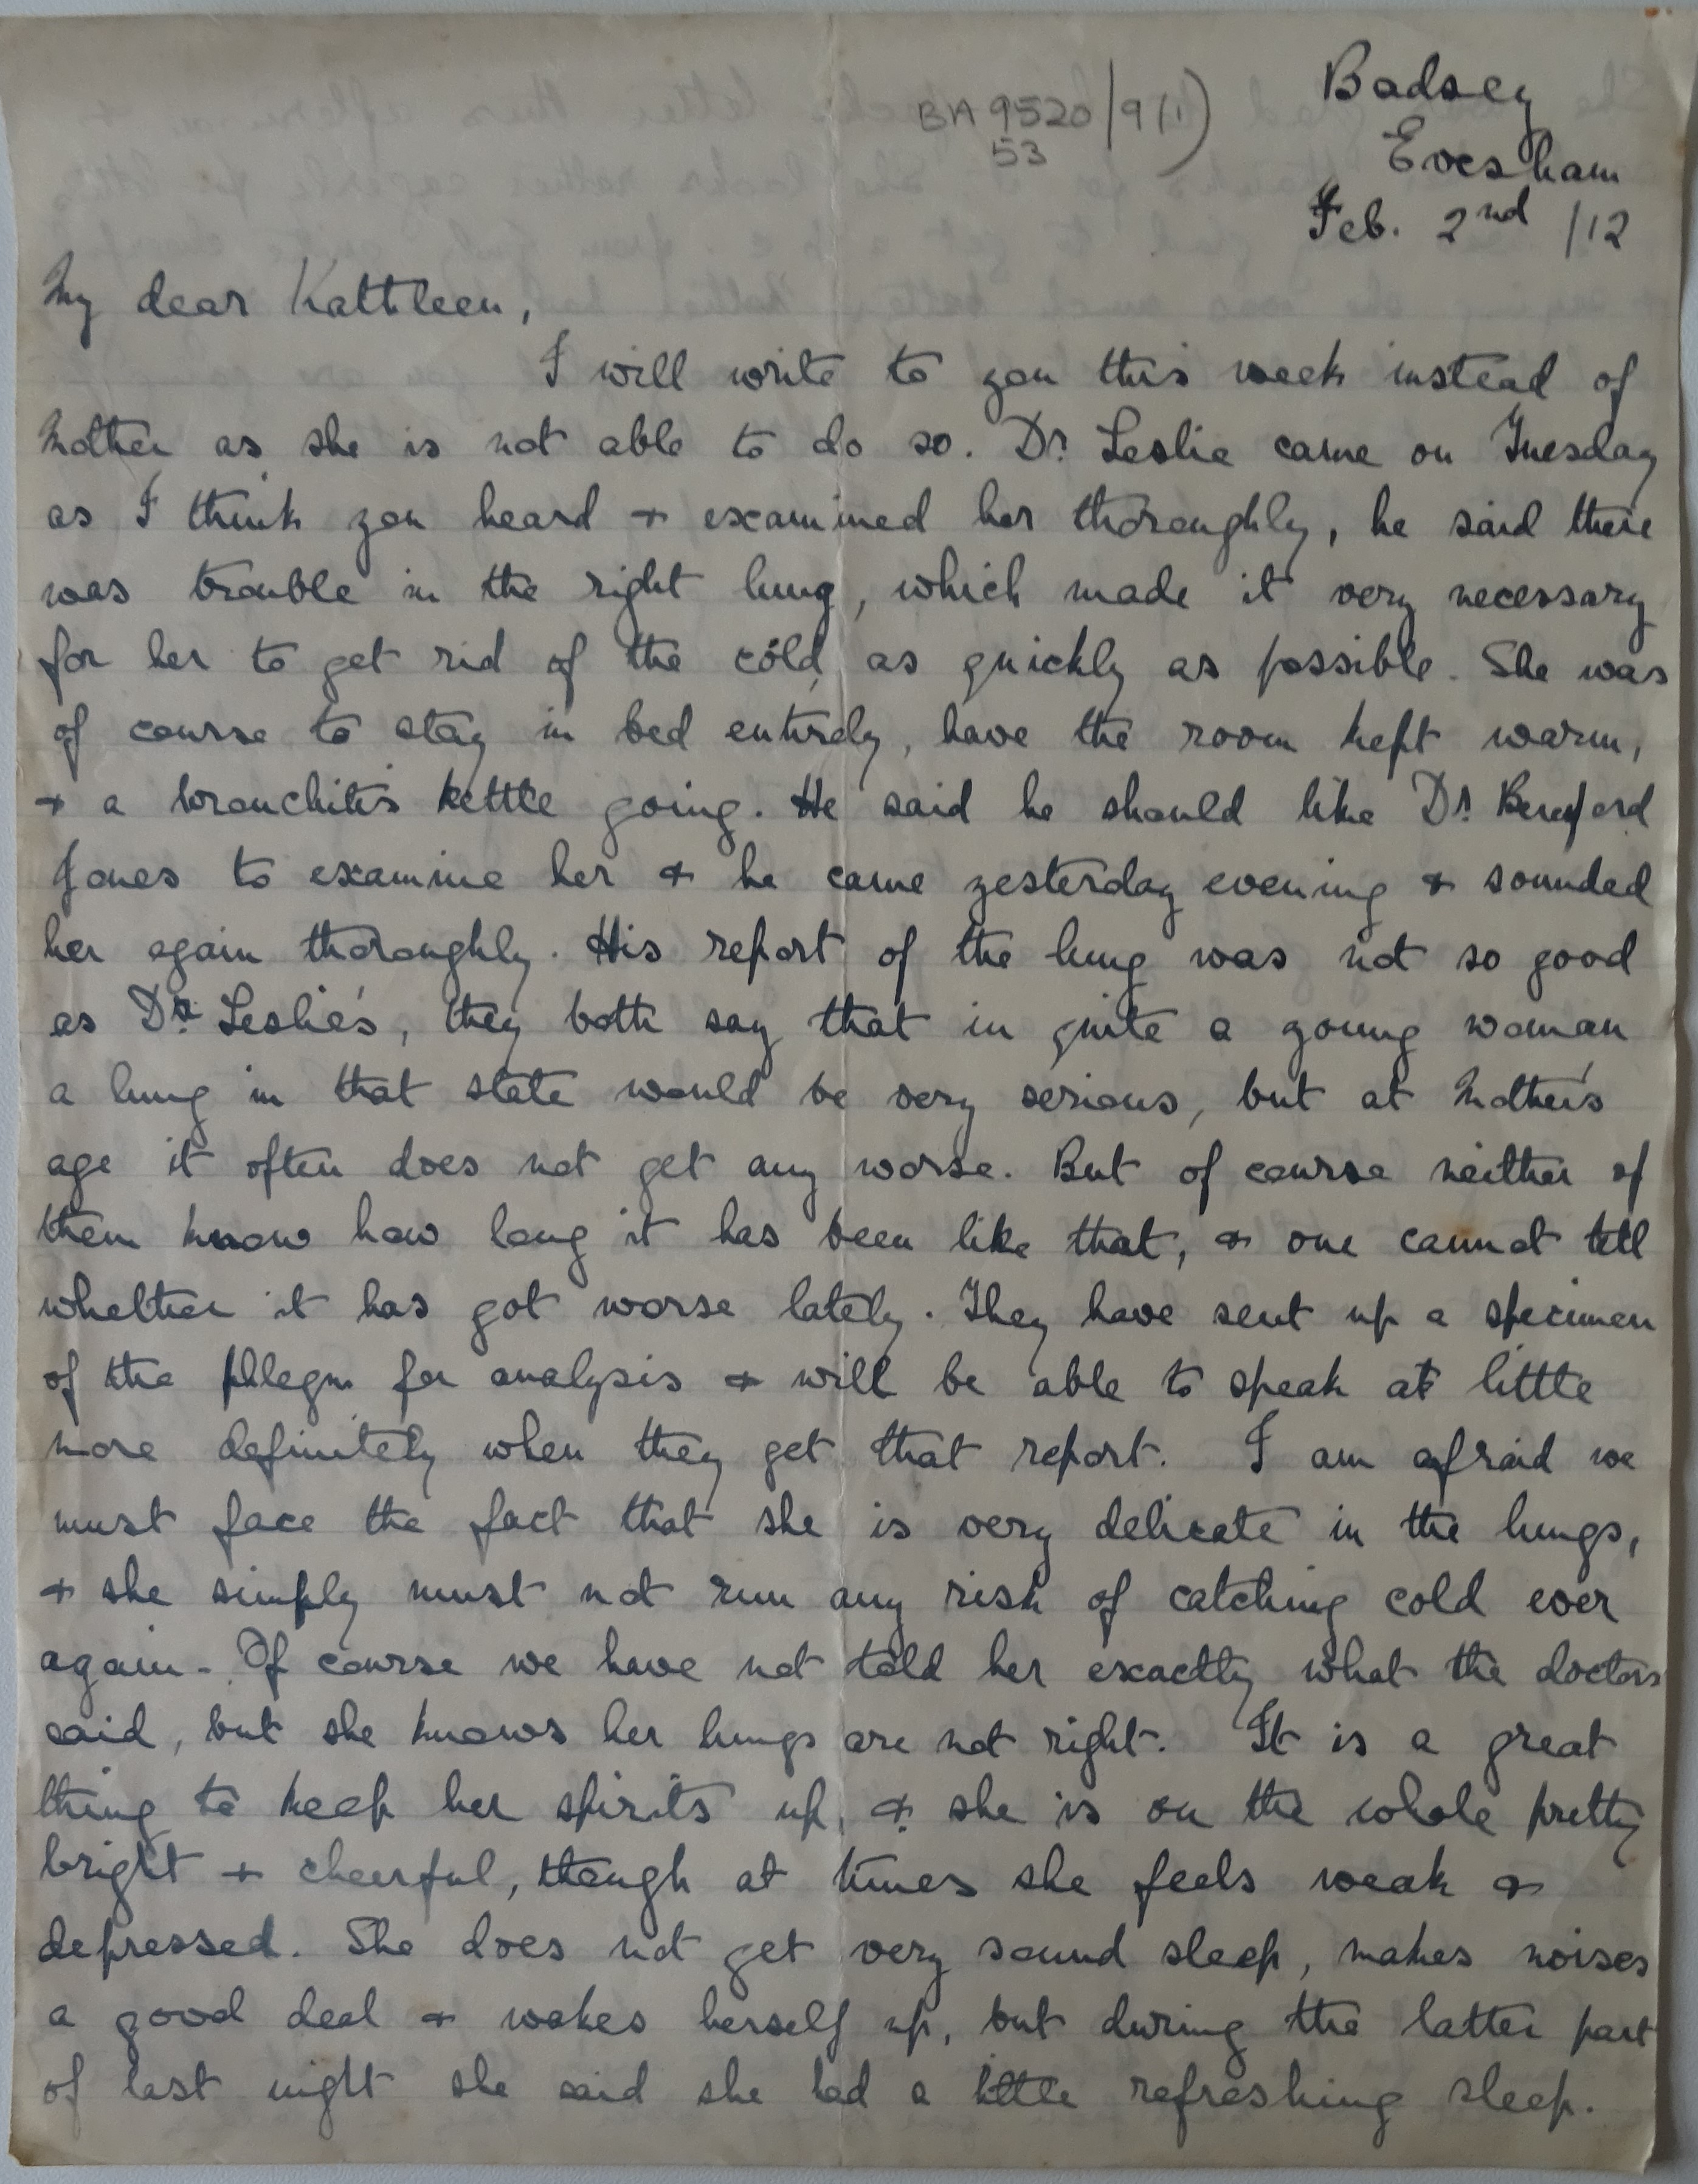 BA 9520/9(1)
53
Badsey
Evesham
Feb. 2nd /12
My dear Kathleen,
I will write to you this week instead of
Mother as she is not able to do so. Dr. Leslie came on Tuesday
as I think you heard & examined her thoroughly, he said there
was trouble in the right lung, which made it very necessary
for her to get rid of the cold as quickly as possible. She was
of course to stay in bed entirely, have the room kept warm,
& a bronchitis kettle going. He said he should like Dr.
Jones to examine her & he came yesterday evening & sounded
her again thoroughly. His report of the lung was not so good
as Dr. Leslie's, they both say that in quite a young woman
a lung in that state would be very serious, but at Mother's
age it often does not get any worse. But of course neither of
them know how long it has been like that, & one cannot tell
whether it has got worse lately. They have sent up a specimen
of the phlegm for analysis & will be able to speak at little
more definitely when they get that report. I am afraid we
must face the fact that she is very delicate in the lungs,
& she simply must not run any risk of catching cold ever
again. Of course we have not told her exactly what the doctors
said, but she knows her lungs are not right. It is a great
thing to keep her spirits up, & she is on the whole pretty
bright & cheerful, though at times she feels weak &
depressed. She does not get very sound sleep, makes noises
a good deal & wakes herself up, but during the latter part
of last night she said she had a little refreshing sleep.